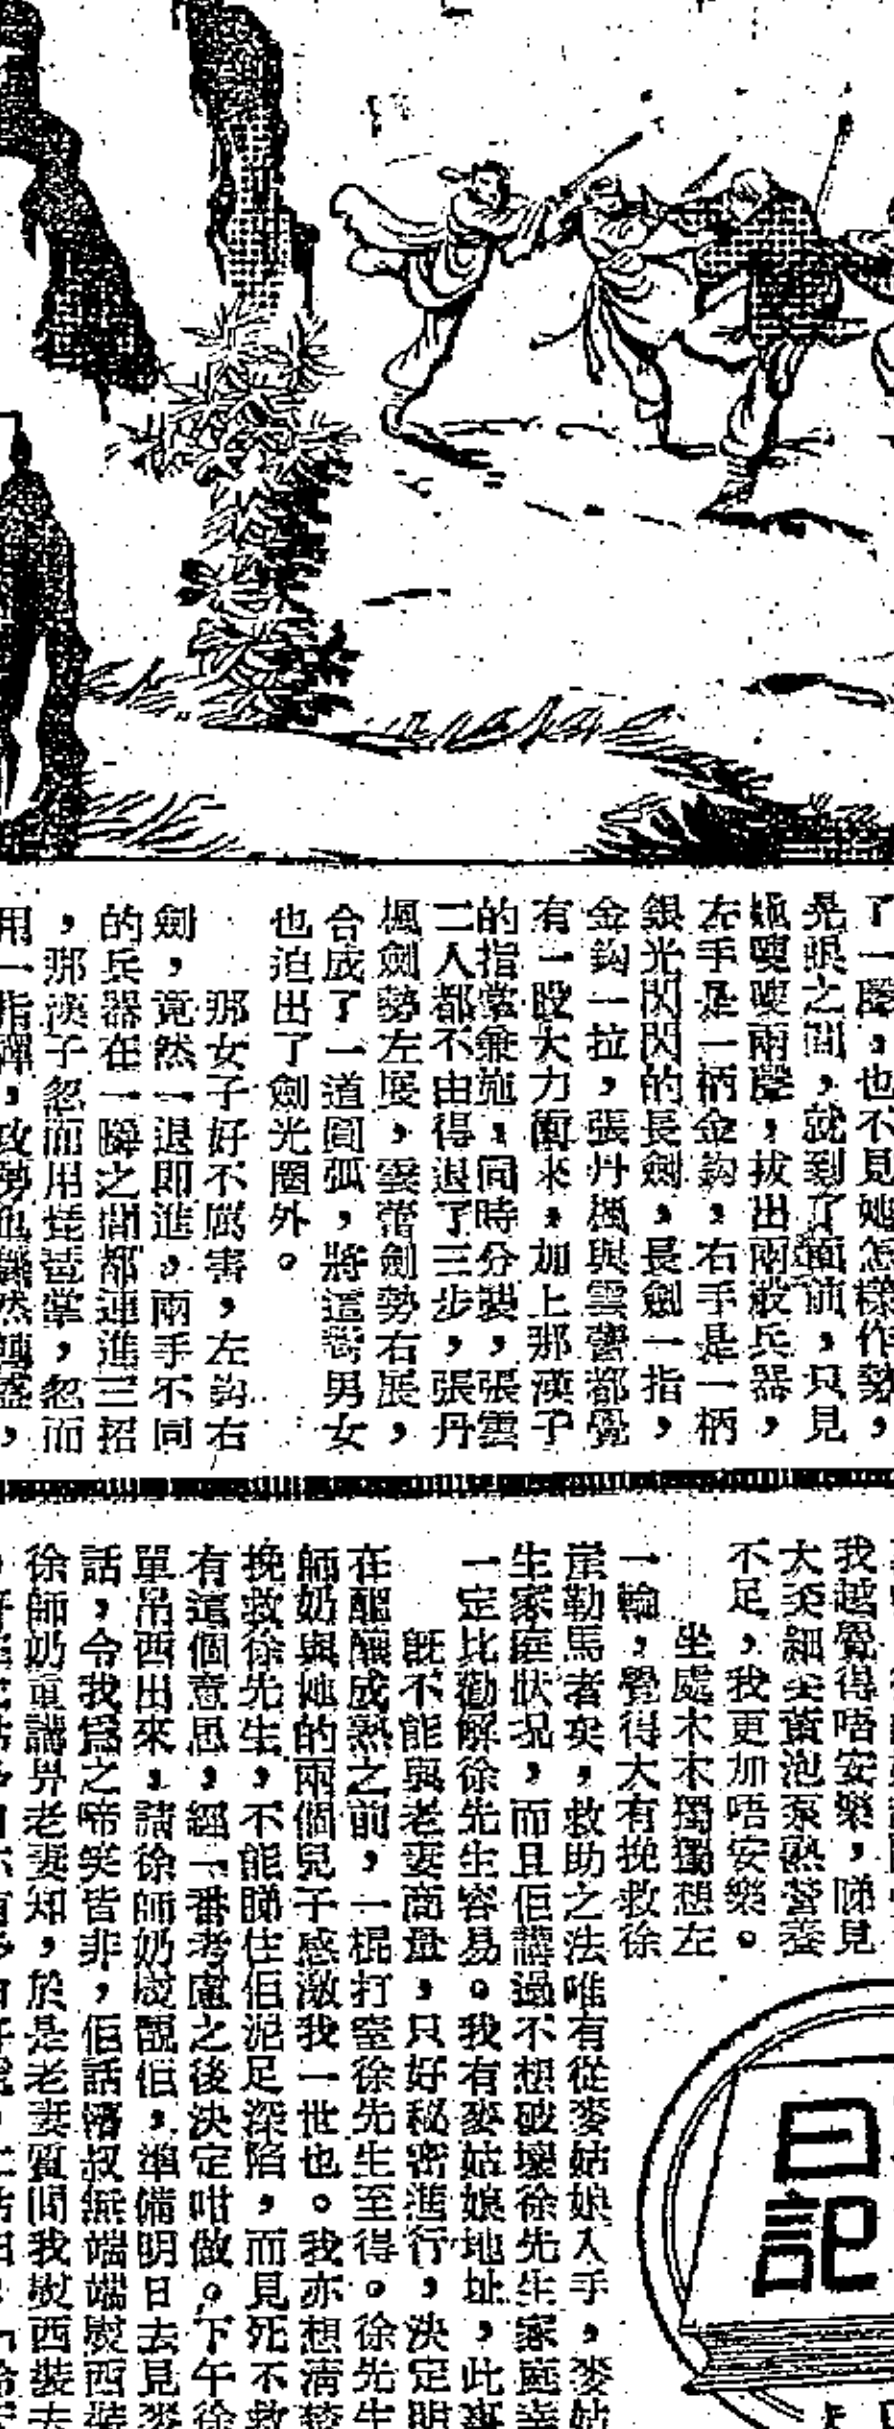 了一聲，也不見她怎樣作勢，
晃眼之間，就到了面前，只見
她嗖嗖兩聲，拔出兩般兵器，
左手是一柄金鈎，右手是一柄
銀光閃閃的長劍，長劍一指，
金鈎一拉，張丹楓與雲蕾都覺
有一股大力衝來，加上那漢子
的指掌兼施，同時分襲，張雲
二人都不由得退了三步，張丹
楓劍勢左展，雲蕾劍勢右展，
合成了一道圓弧，將這對男女
也迫出了劍光圈外。
那女子好不厲害，左鈎右
劍，竟然一退即進，兩手不同
的兵器在一瞬之間都連進三招
，那漢子忽而用琵琶掌，忽而
用一指禪，攻勢也驟然轉盛，
我越覺得唔安樂，睇見
大泰細
不足，我更加唔安樂。
坐處木木獨獨想左
一輪，覺得大有挽救徐
崖勒馬者矣，救助之法唯有從麥姑娘入手，麥姑
生家庭狀況，而且佢講過不想破壞徐先生家庭幸
一定比勸解徐先生容易。我有麥姑娘地址，此事
既不能與老妻商量，只好秘密進行，決定明
在醞釀成熟之前，一棍打窒徐先生至得。徐先生
師奶與她的兩個兒子感激我一世也。我亦想清楚
挽救徐先生，不能睇住佢泥足深陷，而見死不救
有這個意思，經一番考慮之後決定咁做。下午徐
單吊西出來，請徐師奶熨靚佢，準備明日去見麥
話，令我爲之啼笑皆非，佢話濟叔無端端熨西裝
徐師奶重講畀老妻知，於是老妻質問我熨西裝去
日記